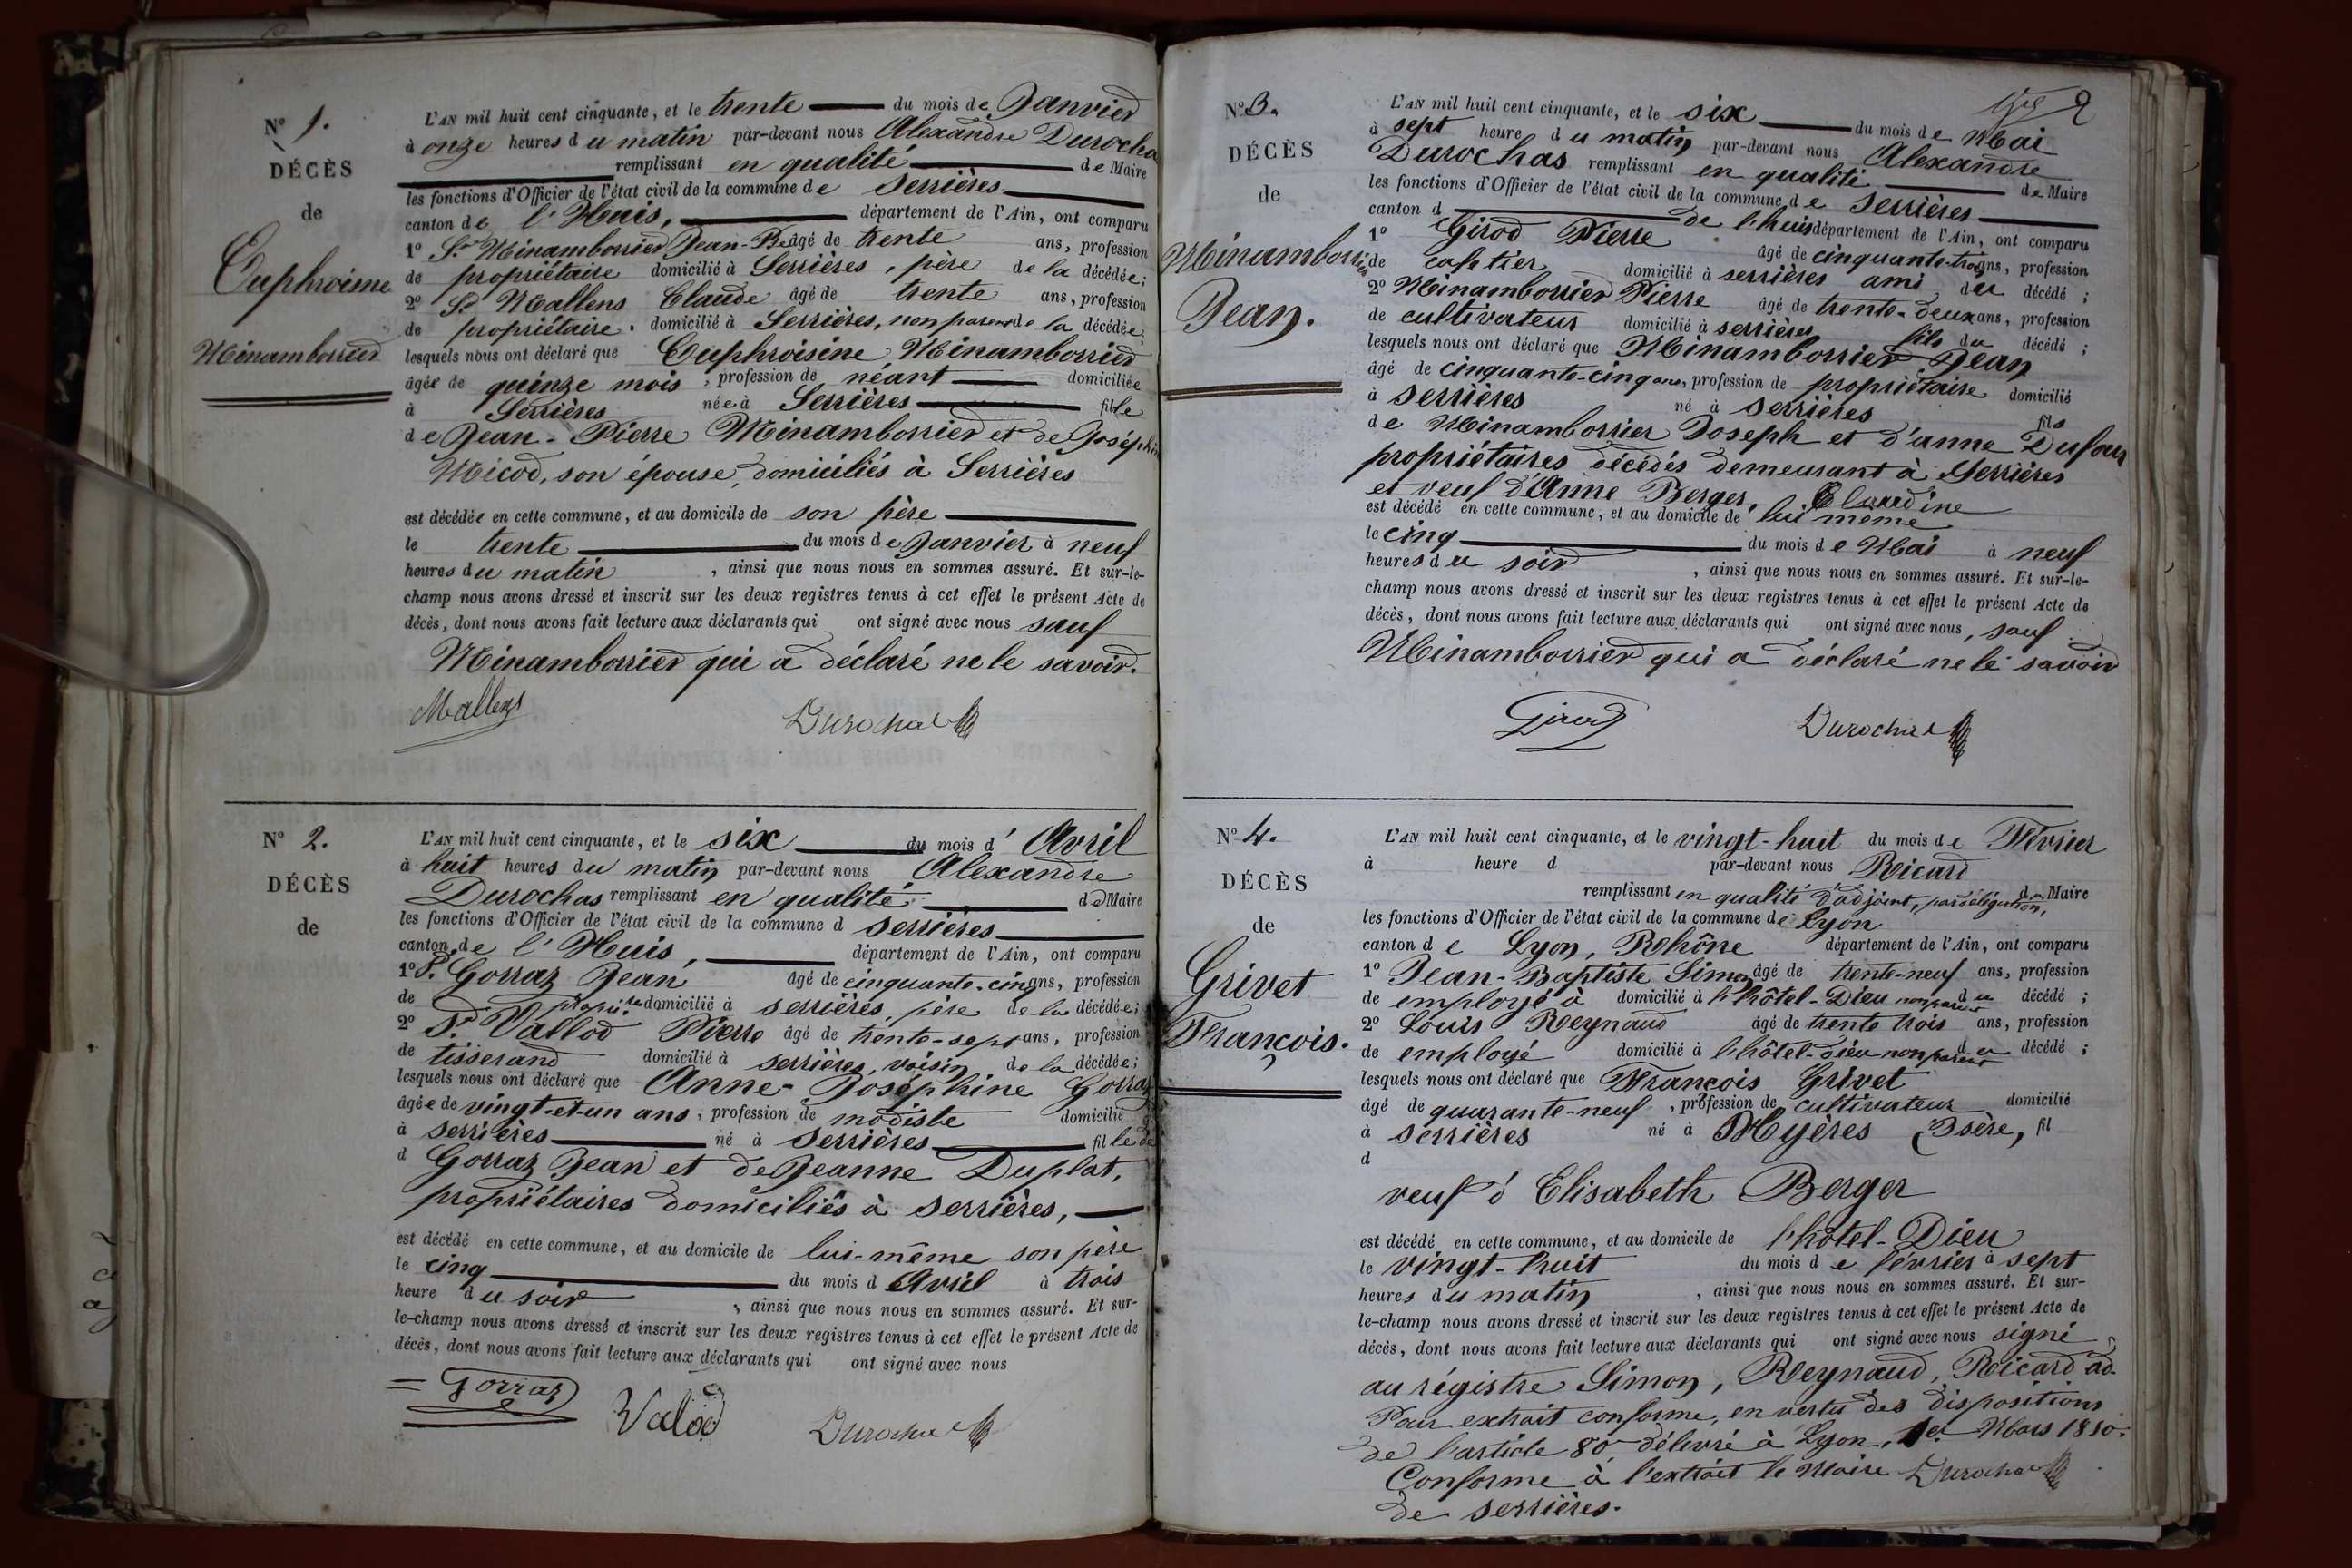 N° 1.
DÉCÈS
de
Euphroisine
Minamborrier
L'AN mil huit cent cinquante, et le trente du mois de Janvier
à onze heures du matin par-devant nous Alexandre Durocha
remplissant en qualité de Maire
les fonctions d'Officier de l'état civil de la commune de Serrières
canton de l'Huis, département de l'Ain, ont comparu
1° Sr Minamborrier Jean-Pre âgé de trente ans, profession
de propriétaire domicilié à Serrières, père de la décédée;
2° Sr Mallens Claude âgé de trente ans, profession
de propriétaire. domicilié à Serrières, non parent de la décédée,
lesquels nous ont déclaré que Euphroisine Minamborrier
âgée de quinze mois, profession de néant domiciliée
à Serrières née à Serrières fille
de Jean-Pierre Minamborrier et de Joséphi
Micod, son épouse, domiciliés à Serrières
est décédée en cette commune, et au domicile de son père
le trente du mois de Janvier à neuf
heures du matin, ainsi que nous nous en sommes assuré. Et sur-le-
champ nous avons dressé et inscrit sur les deux registres tenus à cet effet le présent Acte de
décès, dont nous avons fait lecture aux déclarants qui ont signé avec nous sauf
Minamborrier qui a déclaré ne le savoir.
Mallens Durochas
N° 2.
DÉCÈS
de
L'AN mil huit cent cinquante, et le six du mois d'Avril
à huit heures du matin par-devant nous Alexandre
Durochas remplissant en qualité de Maire
les fonctions d'Officier de l'état civil de la commune d serrières
canton de l'Huis, département de l'Ain, ont comparu
1° S. Gorraz Jean âgé de cinquante-cinq ans, profession
de propre domicilié à serrières, père de la décédée;
2° Sr Vallod Pierre âgé de trente-sept ans, profession
de tisserand domicilié à serrières, voisin de la décédée;
lesquels nous ont déclaré que Anne-Joséphine Gorraz
âgée de vingt-et-un ans, profession de modiste domicilié
à serrières né à Serrières fille de
d Gorraz Jean et de Jeanne Duplat,
propriétaires domiciliés à serrières,
est décédé en cette commune, et au domicile de lui-même son père
le cinq du mois d Avril à trois
heure du soir, ainsi que nous nous en sommes assuré. Et sur-
le-champ nous avons dressé et inscrit sur les deux registres tenus à cet effet le présent Acte de
décès, dont nous avons fait lecture aux déclarants qui ont signé avec nous
Gorraz Valod Durochas
2
N° 3.
DÉCÈS
de
Minamborrier
Jean.
L'AN mil huit cent cinquante, et le six du mois de Mai
à sept heure du matin par-devant nous Alexandre
Durochas remplissant en qualité de Maire
les fonctions d'Officier de l'état civil de la commune de Serrières
canton d de l'huis département de l'Ain, ont comparu
1° Girod Pierre âgé de cinquante-trois ans, profession
de caftier domicilié à serrières ami du décédé;
2° Minamborrier Pierre âgé de trente-deux ans, profession
de cultivateur domicilié à serrières fils du décédé;
lesquels nous ont déclaré que Minamborrier Jean
âgé de cinquante-cinq ans, profession de propriétaire domicilié
à serrières né à serrières fils
de Minamborrier Joseph et d'anne Dufour
propriétaires décédés demeurant à Serrières
et veuf d'Anne Berger, Claudine
est décédé en cette commune, et au domicile de lui même
le cinq du mois de Mai à neuf
heures du soir, ainsi que nous nous en sommes assuré. Et sur-le-
champ nous avons dressé et inscrit sur les deux registres tenus à cet effet le présent Acte de
décès, dont nous avons fait lecture aux déclarants qui ont signé avec nous, sauf
Minamborrier qui a déclaré ne le savoir
Girod Durochas
N° 4.
DÉCÈS
de
Grivet
François.
L'AN mil huit cent cinquante, et le vingt-huit du mois de Février
à heure d par-devant nous Ricard
remplissant en qualité d'adjoint, par délégation, du Maire
les fonctions d'Officier de l'état civil de la commune de Lyon
canton de Lyon, Rhône département de l'Ain, ont comparu
1° Jean-Baptiste Simon âgé de trente-neuf ans, profession
de employé à domicilié à l'hôtel-Dieu non parent du décédé;
2° Louis Reynaud âgé de trente trois ans, profession
de employé domicilié à l'hôtel-dieu non parent du décédé;
lesquels nous ont déclaré que François Grivet
âgé de quarante-neuf, profession de cultivateur domicilié
à serrières né à Hyères (Isère, fil
d
veuf d'Elisabeth Berger
est décédé en cette commune, et au domicile de l'hôtel-Dieu
le vingt-huit du mois de février à sept
heures du matin, ainsi que nous nous en sommes assuré. Et sur-
le-champ nous avons dressé et inscrit sur les deux registres tenus à cet effet le présent Acte de
décès, dont nous avons fait lecture aux déclarants qui ont signé avec nous signé
au régistre Simon, Reynaud, Ricard ad.
Pour extrait conforme, en vertu des dispositions
de l'article 80 délivré à Lyon, 1er Mars 1850.
Conforme à l'extrait le Maire Durochas
de serrières.